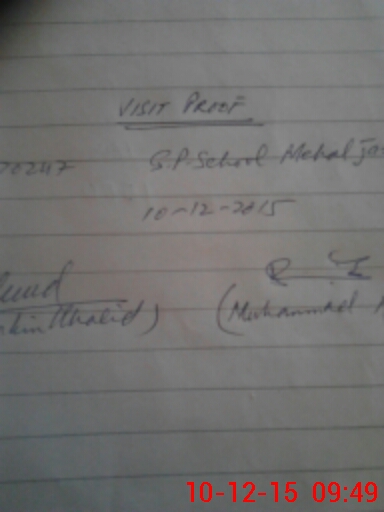 VISIT PROOF
70247 G.P.School Mehal
10-12-2015
Khalid) (Muhammad
10-12-15 09:49